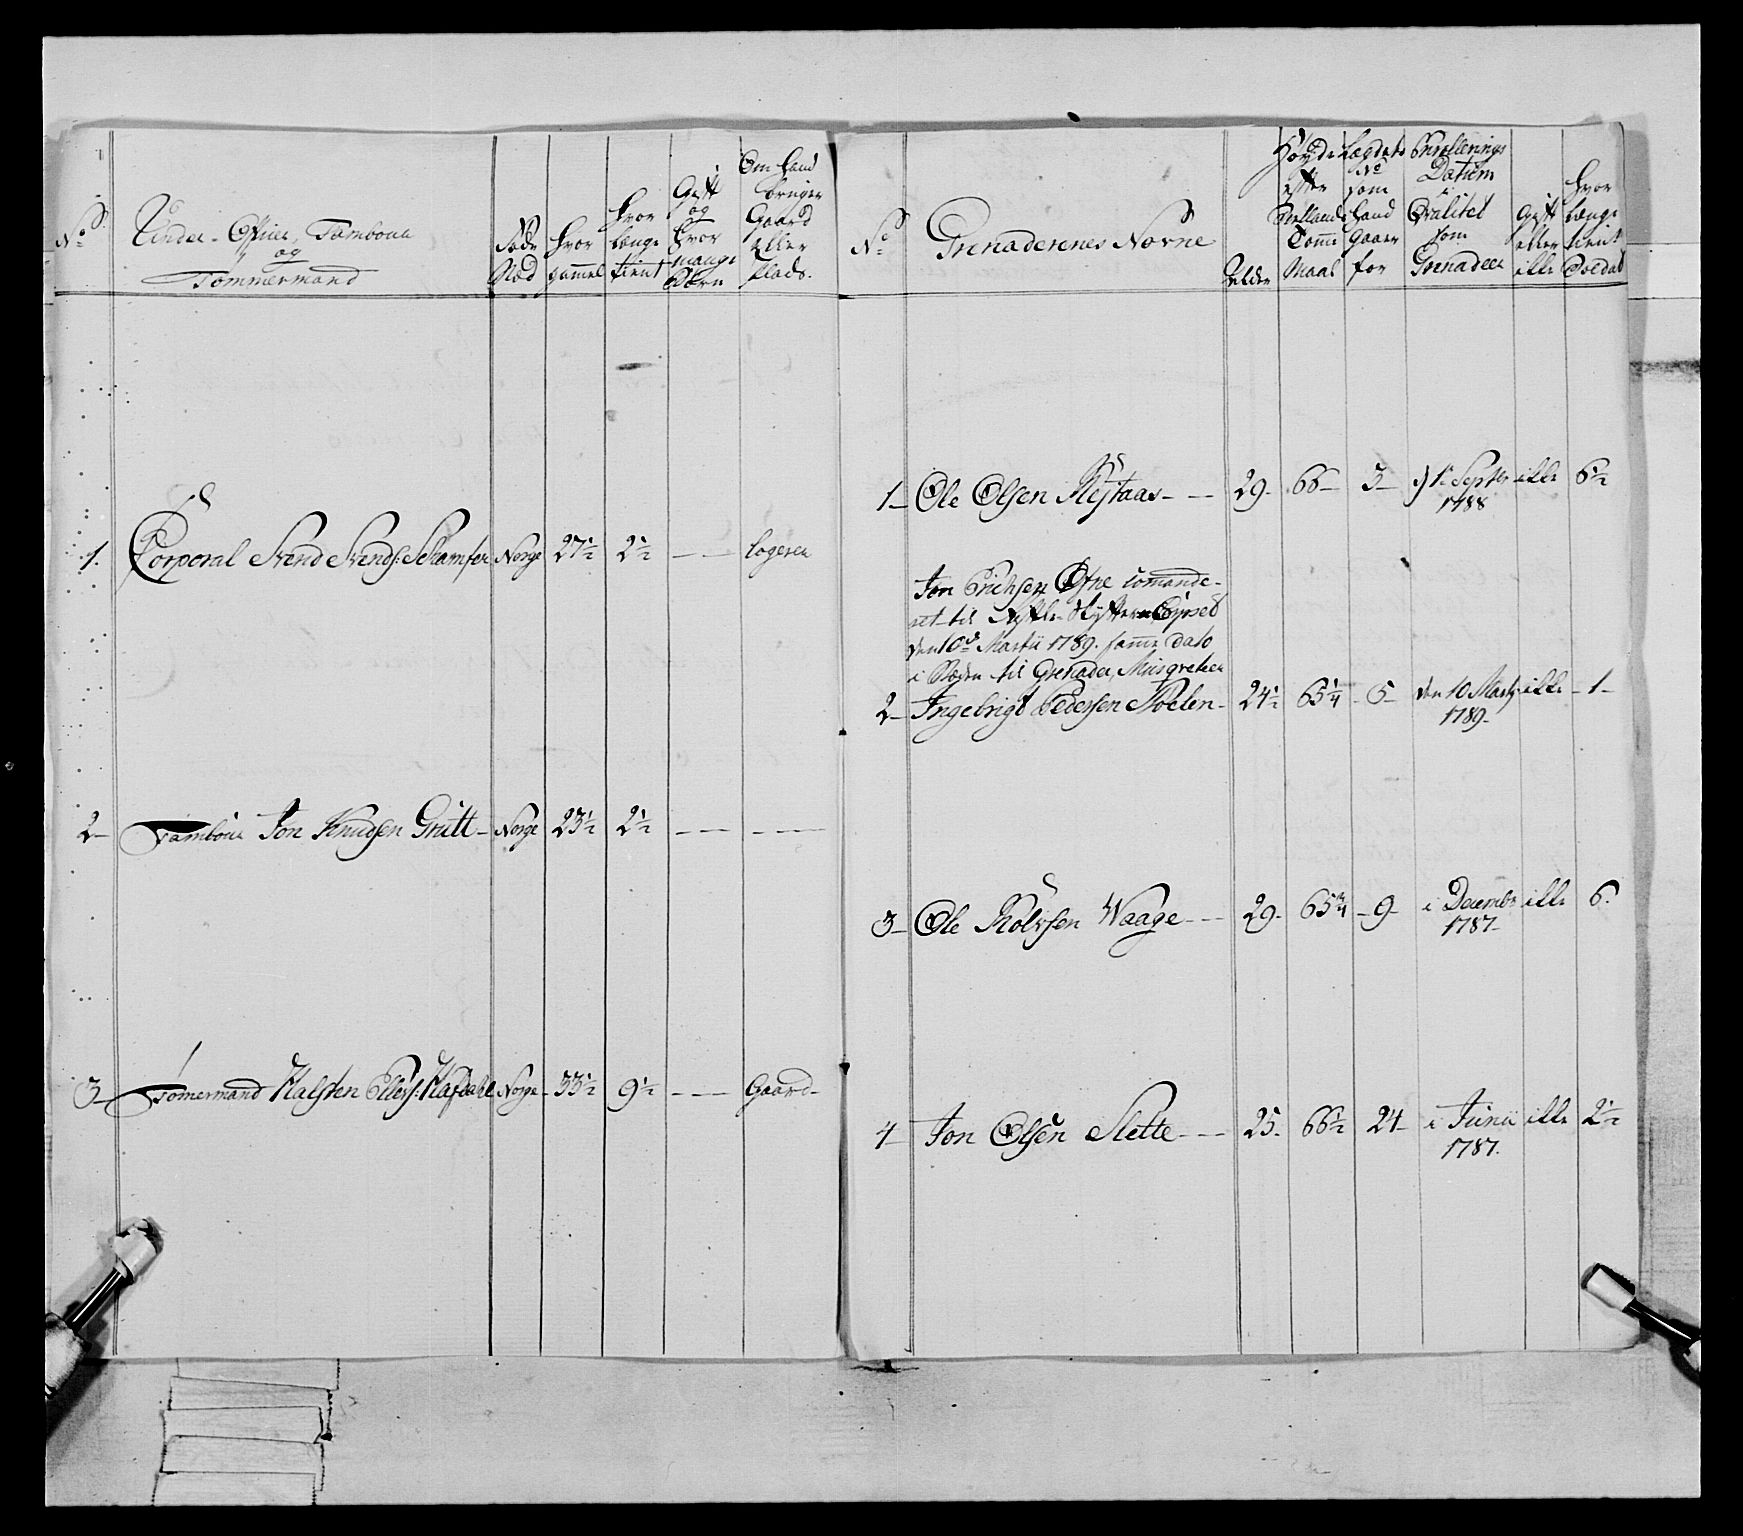 No
Under-Officier, Tambour
og
Tömmermand
Føde
Stæd
hvor
gammel
hvor
længe
tient
Gift
og
hvor
mange
Børn
Om hand
bruger
Gaard
eller
Plads.
1. Corporal Svend Svends: Norge 27½ 2½ — — logeren
2- Tambour Jon Knudsen Gritt- Norge 23½ 2½ - — - —
3- Tömermand Halsten Ellefs: Hafdahl Norge- 33½ 9½ - — Gaard-
No
Grenaderenes Novne
Alder
Høyde
efter
Siellands
Tomme
Maal
Lægdets
No
som
hand
gaaer
for
Enrollerings
Datum
i
Qvalitet
som
Grenadeer
Gift
eller
ikke
hvor
længe
tient
Soldat
1- Ole Olsen Mystaas- — 29- 66- 3- d) 1 Septbr ikke 6½
1788
Jon Erichsen Ofne comande-
ret til Corpset
den 10de Martii 1789. samme Dato
i Steden til Grenadeer, Musqveteer
2- Ingebrigt Pedersen Moelen- 24½ 65¼ - 5- den 10 Marty ikke - 1-
1789-
3- Ole Rolvsen Waage- — 29- 65¾ - 9- i Decembr ikke 6.
1787-
4- Jon Olsen Slette- — 25- 66½ 24- i Junii ikke 2½
1787.